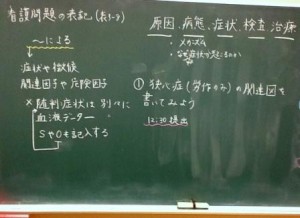 看護問題の表記(表1-3)
～による
症状や徴候
関連因子や危険因子
×随伴症状は別々に
血液データー
SやOを記入する
原因、病態、症状、検査、治療
・メカニズム
・なぜ症状が起こるのか
① 狭心症(労作のみ)の関連図を
書いてみよう
12:30提出